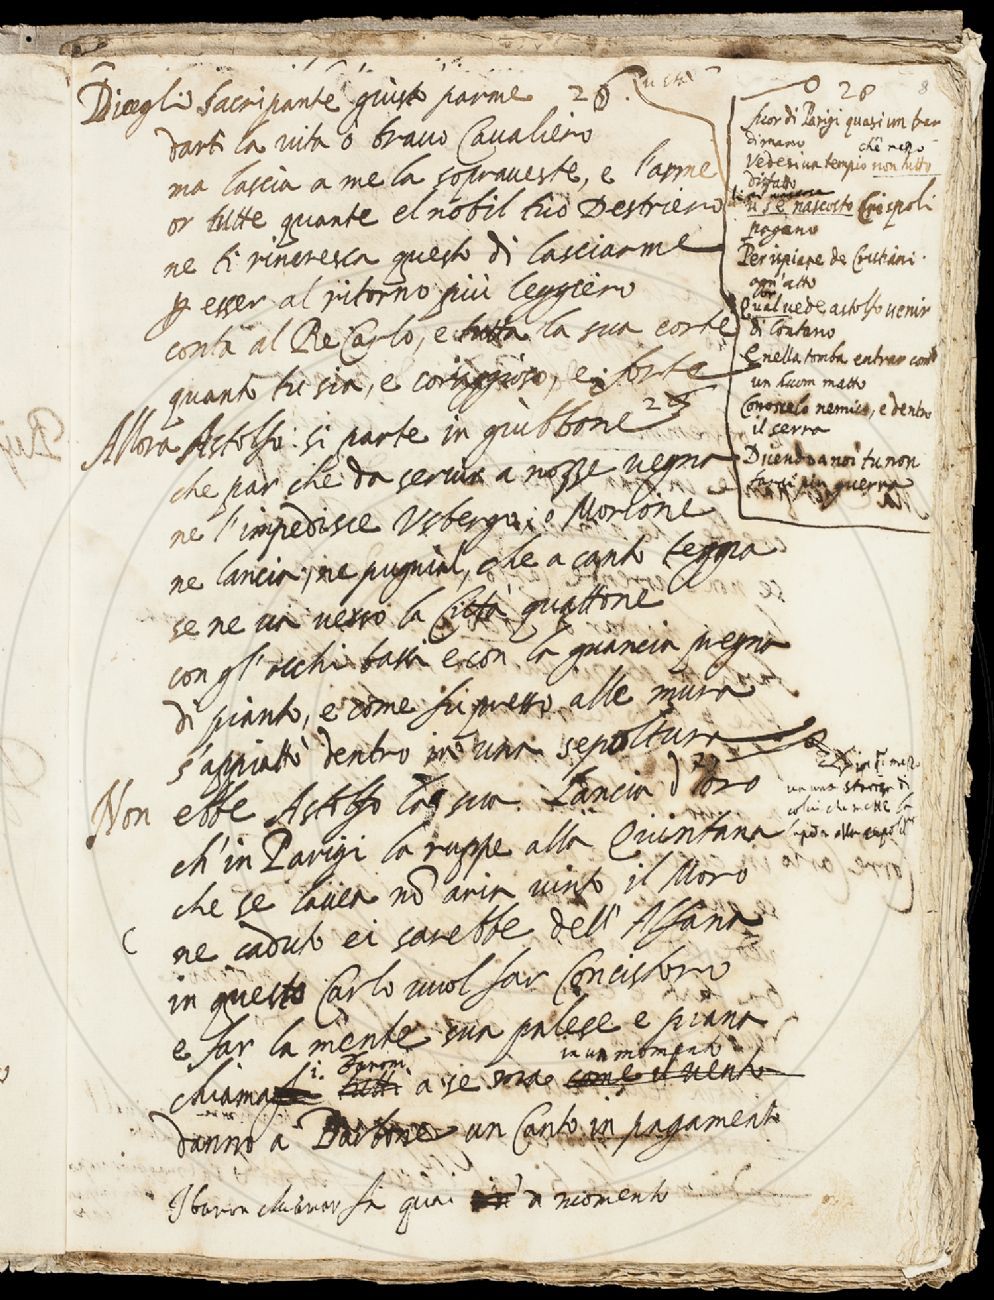 Dicegli Sacripante giusto parme 26
darti la vita o bravo Cavaliero
ma lascia a me la sopraveste, e l'arme
or tutte quante el nobil tuo Destriero
ne ti rincresca questo dì lasciarme
p esser al ritorno più leggiero
conta al Re Carlo, e tutta la sua corte
quanto tu sia, e coraggioso, e forte
Allora Astolfo si parte in giubbone
che par che da servir a nozze vegna
ne l'impedisce Usbergo, o Morione
ne lancia, ne pugnal, che a canto tegna
se ne va verso la Città quattone
con gl'occhi bassi e con la guancia pregna
di pianto, e come fu presso alle mura
s'appiattò dentro in una sepoltura
Non ebbe Astolfo la sua Lancia d'oro 27
ch'in Parigi la ruppe alla Quintana
che se l'avea nō aria vinto il Moro
ne caduto ei sarebbe dell'Alfana
in questo Carlo vuol far Concistoro
e far la mente sua palese e piana
in un momento
chiama i Baroni tutti a se ma come il vento
danno a Barbone un Canto in pagamento
I baron chiamar fa quai in da momento
28
8
fuor di Parigi quasi un trar
di mano
che mezo
Vedesi un tempio non tutto
disfatto
u s'è nascosto Crispoli
pagano
Per ispiare de Cristiani
ogn'atto
Qual vede Astolfo venir
di lontano
E nella tomba entrar com
un huom matto
Conoscelo nemico, e dentro
il serra
Dicendo a noi tu non
farai più guerra